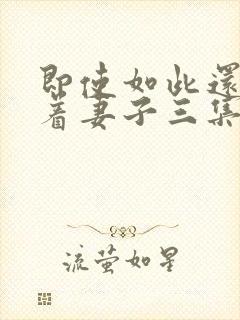 即使如此還
着妻子三集
流萤如星